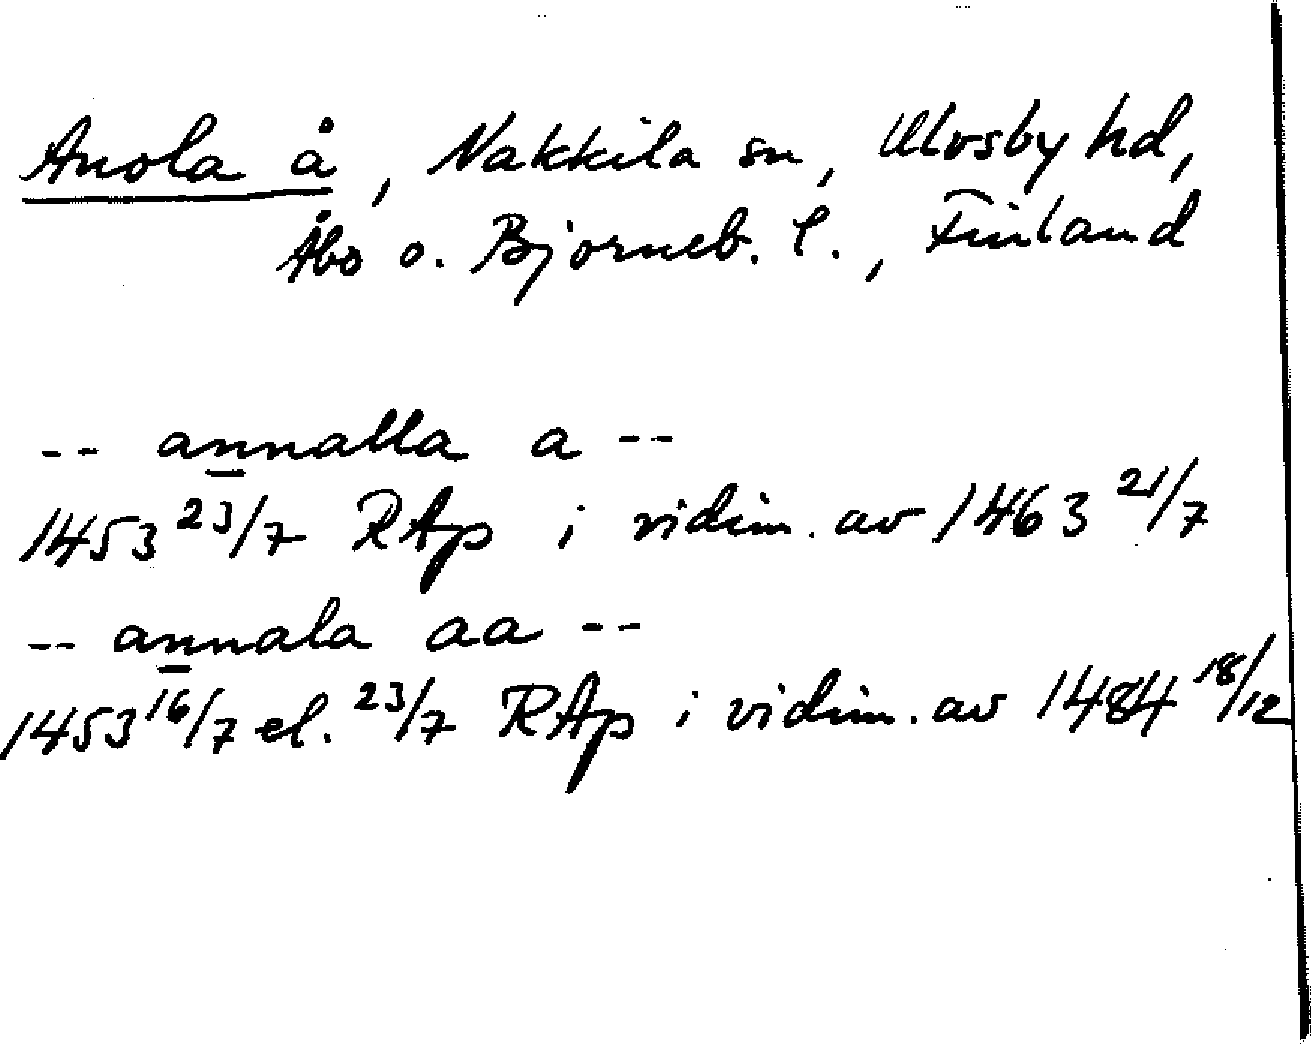 Anola å, Nakkila sn, Ulvsby hd,
Åbo o. Björneb. l., Finland
-- annalla a --
1453 23/7 RAp i vidim. av 1463 21/7
-- annala aa --
1453 16/7 el. 23/7 RAp i vidim. av 1484 18/12